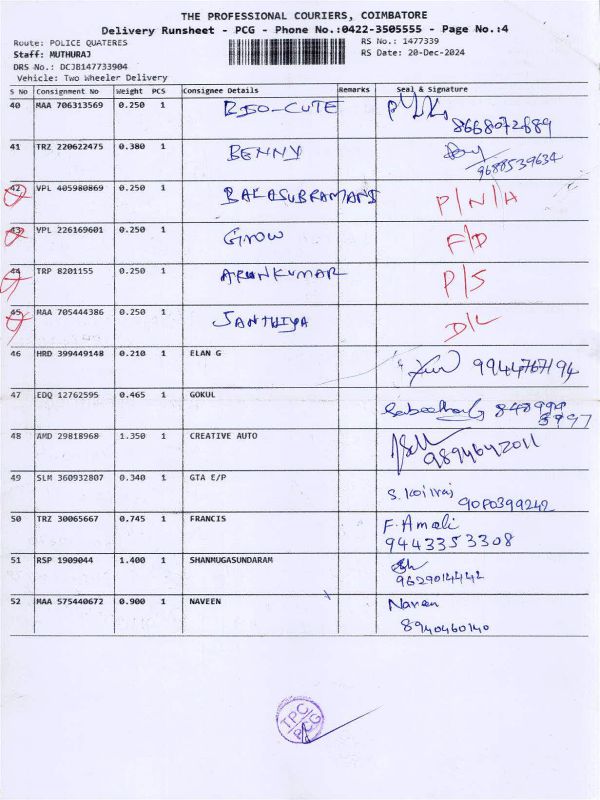 THE PROFESSIONAL COURIERS, COIMBATORE
Delivery Runsheet - PCG - Phone No.:0422-3505555 - Page No.:4
Route: POLICE QUATERES RS No.: 1477339
Staff: MUTHURAJ RS Date: 20-Dec-2024
DRS No.: DCJB147733904
Vehicle: Two Wheeler Delivery
S No Consignment No Weight PCS Consignee Details Remarks Seal & Signature
40 MAA 706313569 0.250 1 BIO-CUTE
8668072689
41 TRZ 220622475 0.380 1 BENNY
9688539634
42 VPL 405980869 0.250 1 BALASUBRAMANI P/N/A
43 VPL 226169601 0.250 1 GROW F/D
44 TRP 8201155 0.250 1 ARUNKUMAR P/S
45 MAA 705444386 0.250 1 SANTHIYA D/L
46 HRD 399449148 0.210 1 ELAN G 9944767194
47 EDQ 12762595 0.465 1 GOKUL 848999
3997
48 AMD 29818968 1.350 1 CREATIVE AUTO
9894642011
49 SLM 360932807 0.340 1 GTA E/P
9080399242
50 TRZ 30065667 0.745 1 FRANCIS F. Amali
9443353308
51 RSP 1909044 1.400 1 SHANMUGASUNDARAM
9629014442
52 MAA 575440672 0.900 1 NAVEEN Naveen
8940460140
TPC
PCG